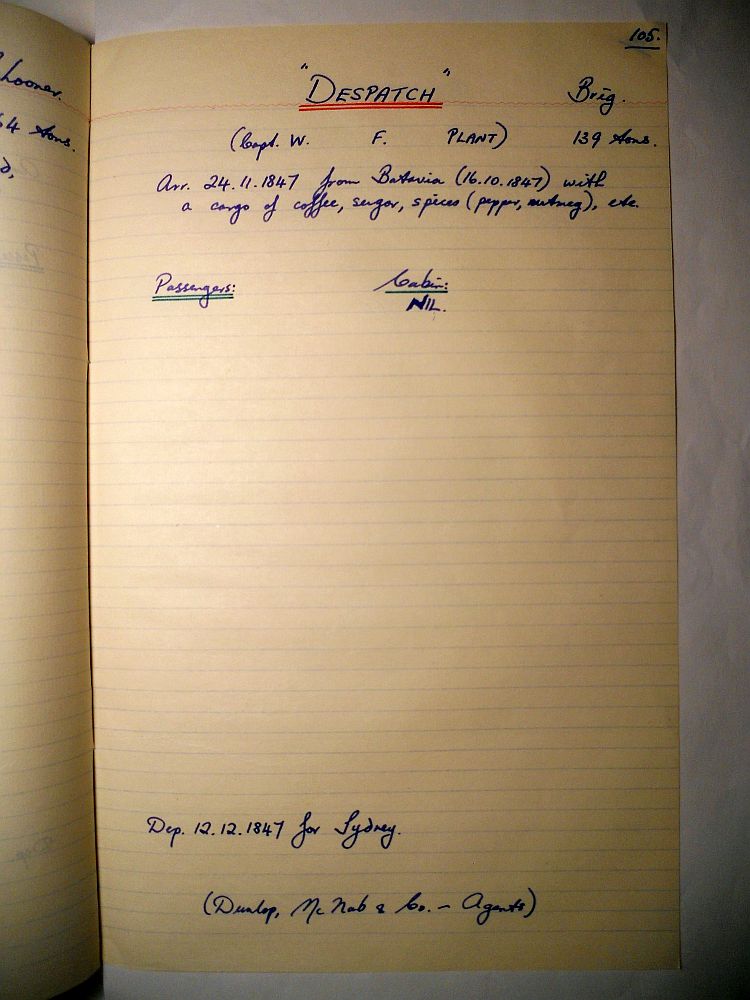 105.
"DESPATCH" Brig.
(Capt. W. F. PLANT) 139 tons.
Arr. 24.11.1847 from Batavia (16.10.1847) with
a cargo of coffee, sugar, spices (pepper, nutmeg), etc.
Passengers: Cabin:
NIL.
Dep. 12.12.1847 for Sydney.
(Dunlop, McNab & Co. - Agents)
64 tons.